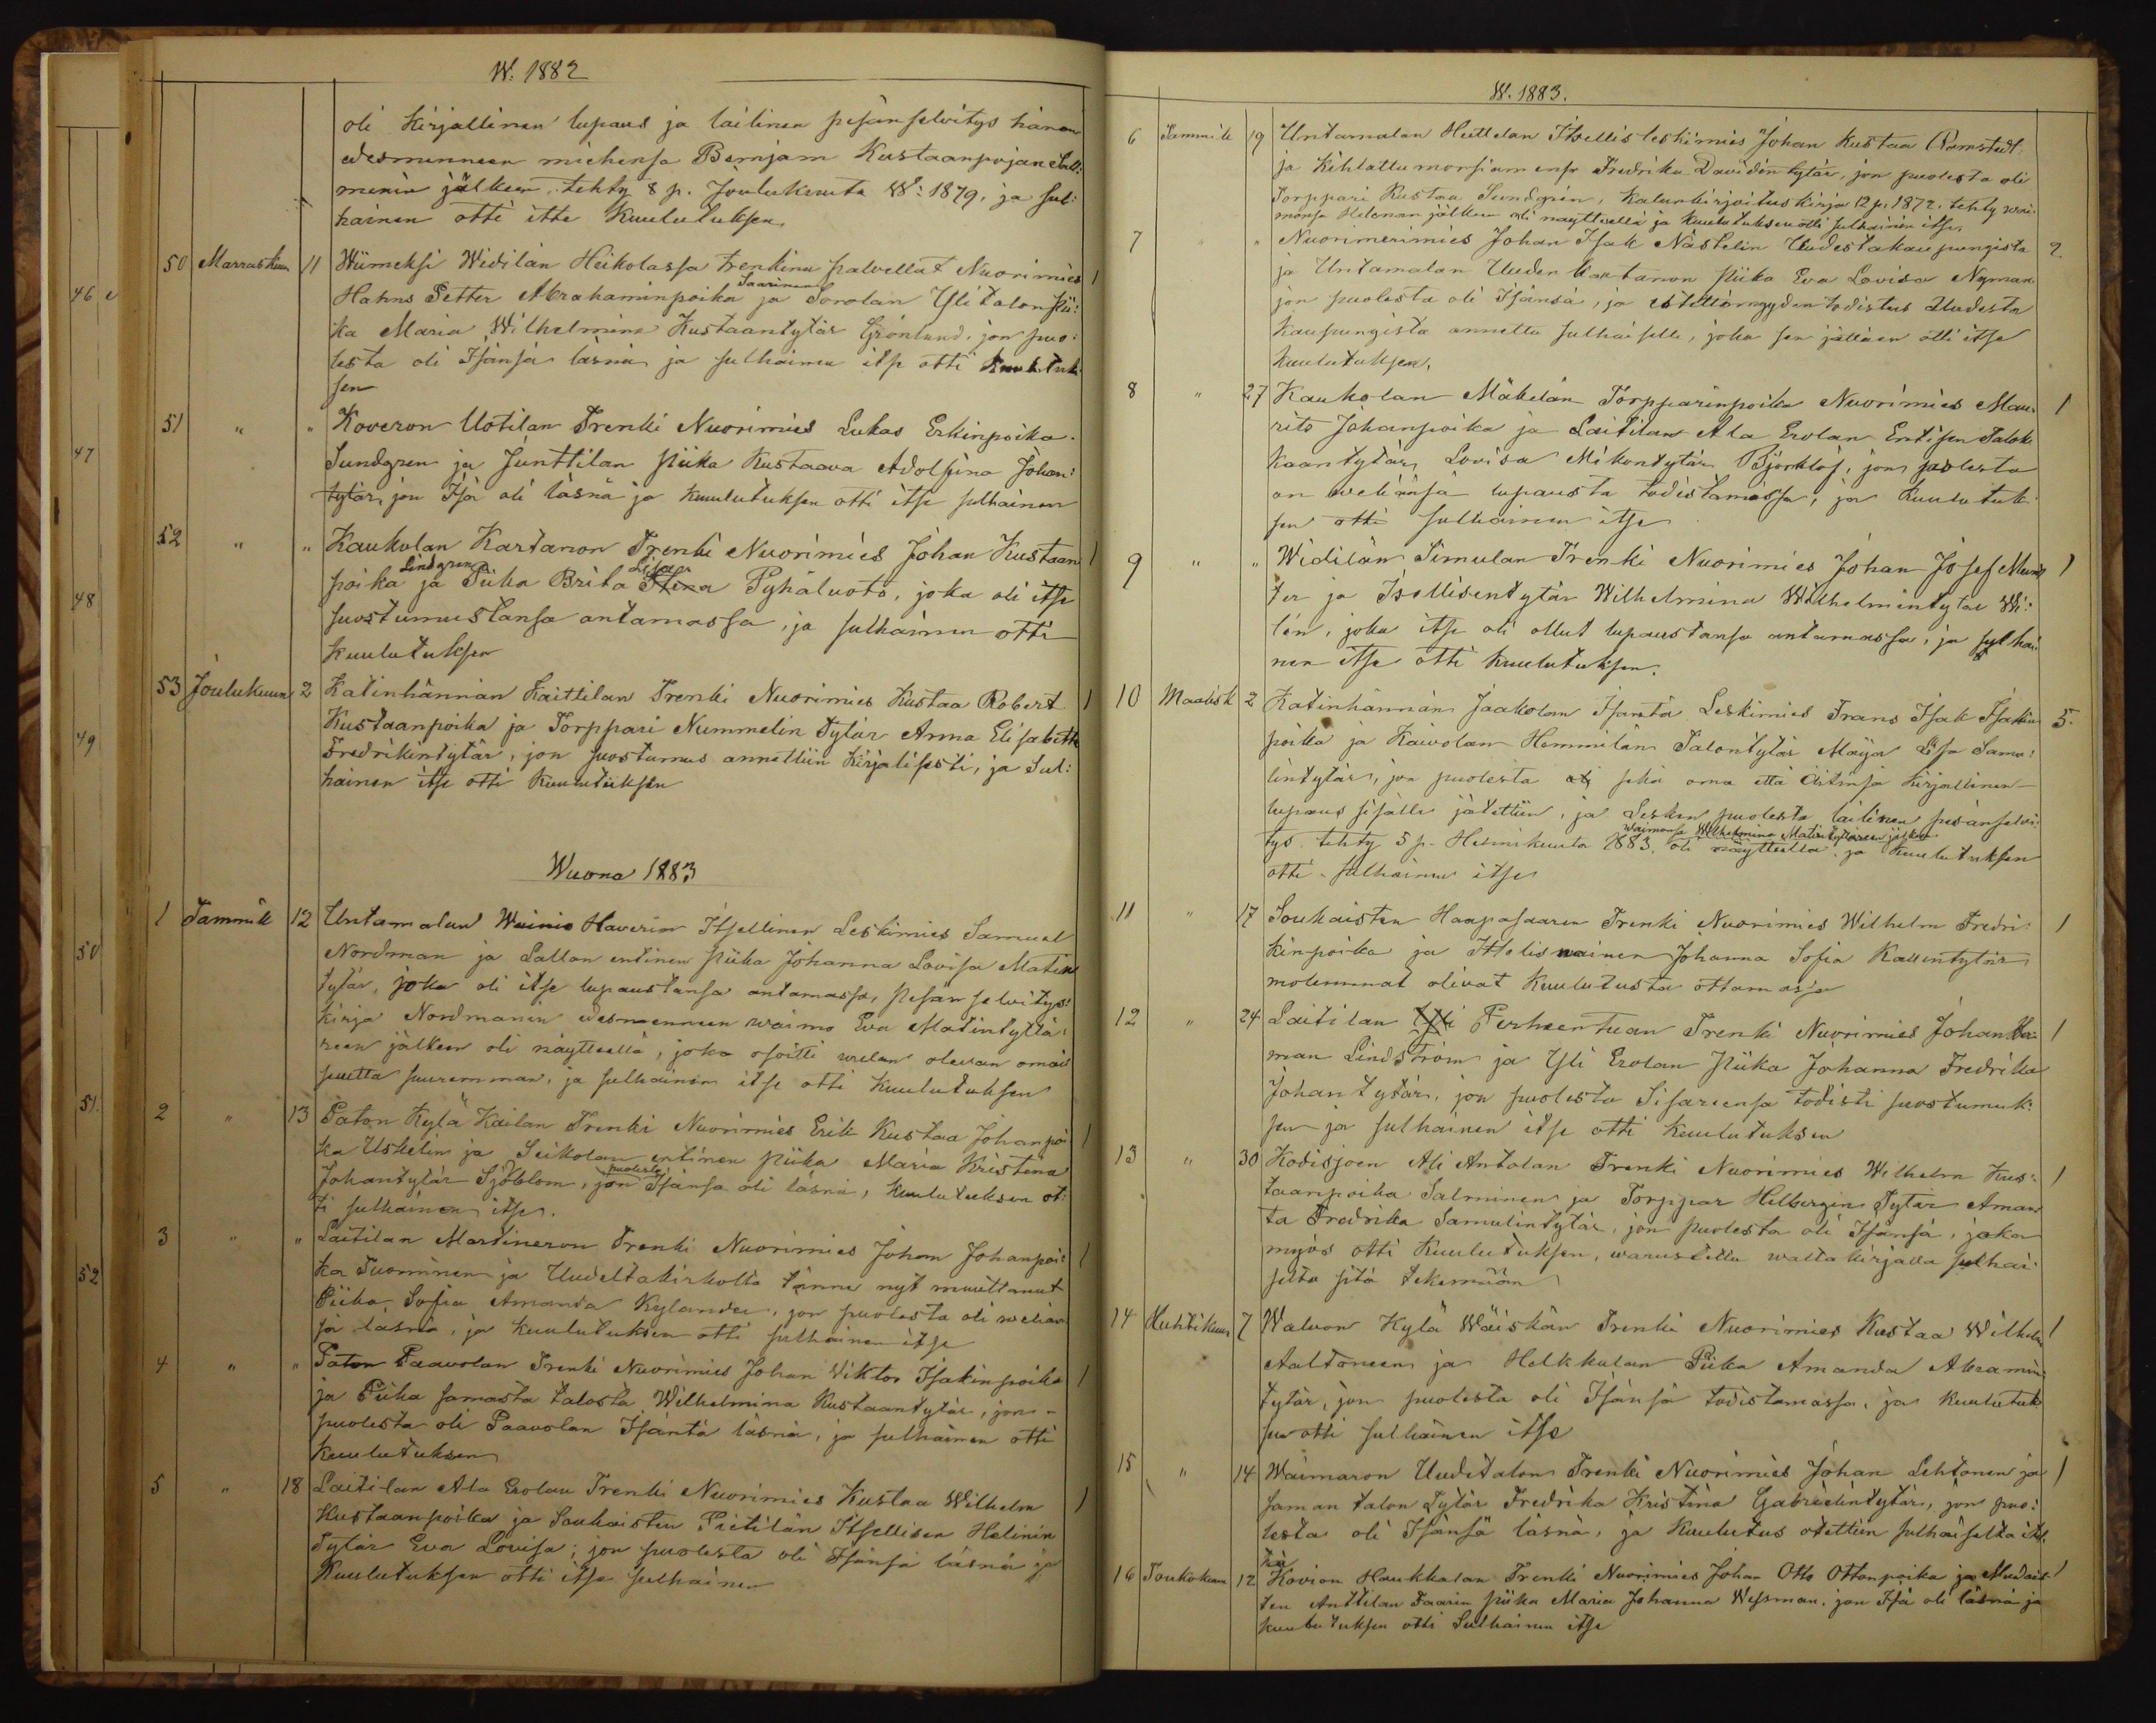 W. 1882
oli kirjallinen lupaus ja lailinen pesänselvitys hänen
edesmenneen miehensä Benjam Kustaanpojan Sall:
menin jälkeen, tehty 8 p. Joulukuuta W: 1879, ja sul:
hainen otti itse kuulutuksen.
50 Marraskuun 11 Wiimeksi Widilän Heikolassa trenkinä palvellut Nuorimies 1
Saarinen
Hahns Petter Abrahaminpoika ja Sorolan Ylitalon Pii:
ka Maria Wilhelmina Kustaantytär Grönlund, jon puo:
lesta oli Isänsä läsnä ja sulhainen itse otti kuulutuk
sen
51 " " Koveron Uotilan Trenki Nuorimies Lukas Erkinpoika
Sundgren ja Junttilan Piika Kustaava Adolfina Johan:
tytär, jon Isä oli läsnä ja kuulutuksen otti itse sulhainen
52 " " Kaukolan Kartanon Trenki Nuorimies Johan Kustaan 1
Lindgren Lisa
poika ja Piika Brita Stina Pyhäluoto, joka oli itse
suostumustansa antamassa, ja sulhainen otti
kuulutuksen
53 Joulukuun 2 Katinhännän Kaittilan Trenki Nuorimies Kustaa Robert 1
Kustaanpoika ja Torppari Nummelin tytär Anna Elisabeth
Fredrikintytär, jon suostumus annettiin kirjalisesti, ja Sul:
hainen itse otti kuulutuksen
Wuona 1883
1 Tammik 12 Untamalan Wainio Haverin Itsellinen Leskimies Samuel
Nordman ja Lallon entinen Piika Johanna Lovisa Matin
tytär, joka oli itse lupaustansa antamassa, Pesänselvitys:
kirja Nordmanin edesmenneen waimo Eva Matintyttä:
reen jälkeen oli näytteellä, joka osoitti welan olevan omai
suutta suuremman, ja sulhainen itse otti kuulutuksen
2 " 13 Paton Kylä Kailan Trenki Nuorimies Erik Kustaa Johanpoi 1
ka Uskelin ja Seikolan entinen Piika Maria Kristina
puolesta
Johantytär Sjöblom, jon Isänsä oli läsnä, kuulutuksen ot:
ti sulhainen itse.
3 " " Laitilan Martineron Trenki Nuorimies Johan Johanpoi: 1
ka Tuominen ja Uudeltakirkolta tänne nyt muuttanut
Piika Sofia Amanda Kylander, jon puolesta oli weljän
sä läsnä, ja kuulutuksen otti sulhainen itse
4 " " Paton Paavolan Trenki Nuorimies Johan Wiktor Isakinpoika 1
ja Piika samasta talosta Wilhelmina Kustaantytär, jon
puolesta oli Paavolan Isäntä läsnä, ja sulhainen otti
kuulutuksen
5 " 18 Laitilan Ala Erolan Trenki Nuorimies Kustaa Wilhelm 1
Kustaanpoika ja Soukaisten Pietilän Itsellisen Helinin
Tytär Eva Lovisa; jon puolesta oli Isänsä läsnä ja
kuulutuksen otti itse sulhainen
46
47
48
49
50
51.
52
W. 1883.
6 Tammik 19 Untamalan Heittelan Itsellis leskimies Johan Kustaa
ja Kihlattu morsiamensa Fredrika Davidintytär, jon puolesta oli
Torppari Kustaa Sundgrén, kalunkirjoituskirja 12 p. 1872. tehty wai
monsa Helenan jälkeen oli naytteellä ja kuulutuksen otti sulhainen itse.
7 " Nuorimerimies Johan Isak Näshelin Uudestakaupungista 2
ja Untamalan Uuden Kartanon Piika Eva Lovisa Nyman
jon puolesta oli Isänsä, ja esteltömyyden todistus Uudesta
kaupungista annettu sulhaiselle, joka sen jälkeen otti itse
kuulutuksen.
8 " 27 Kaukolan Mäkelän Torpparinpoika Nuorimies Mau: 1
rits Johanpoika ja Laitilan Ala Erolan Entisen Talok
kaantytär Lovisa Mikontytär Björklöf, jon puolesta
on weljänsä lupausta todistamassa, ja kuulutuk
sen otti sulhainen itse
9 " " Widilän Simulan Trenki Nuorimies Johan Josef 1
ter ja Itsellisentytär Wilhelmina Wilhelmintytär Wi:
lén, joka itse oli ollut lupaustansa antamassa, ja sulhai
nen itse otti kuulutuksen.
10 Maalisk 2 Katinhännän Jaakolan Isäntä Leskimies Frans Isak Isakin 5.
poika ja Kaivolan Hemmilän Talontytär Maija Lisa Samu:
lintytär, jon puolesta oli sekä oma että äitinsä kirjallinen
lupaus sisälle jätettiin, ja Lesken puolesta lailinen pesänselvi:
waimonsa Wilhelmina Matintyttären jälkeen
tys tehty 5 p. Helmikuuta 1883. oli näytteellä. ja kuulutuksen
otti sulhainen itse
11 " 17 Soukaisten Haapasaaren Trenki Nuorimies Wilhelm Fredri: 1
kinpoika ja Itselisnainen Johanna Sofia Kallentytär
molemmat olivat kuulutusta ottamassa
12 " 24 Laitilan Perheentuan Trenki Nuorimies Johan Her 1
man Lindström ja Yli Erolan Piika Johanna Fredrika
Johantytär, jon puolesta Sisarensa todisti suostumuk:
sen ja sulhainen itse otti kuulutuksen
13 " 30 Kodisjoen Ali Antolan Trenki Nuorimies Wilhelm Kus: 1
taanpoika Salminen ja Torppar Helbergin Tytär Aman
ta Fredrika Samulintytär, jon puolesta oli Isänsä, joka
myös otti kuulutuksen, warustettu waltakirjalla sulhai
selta sitä tekemään
14 Huhtikuun 7 Walvon Kylä Wäiskän Trenki Nuorimies Kustaa Wilhelm 1
Aaltoneen ja Helkkulan Piika Amanda Abramin
tytär, jon puolesta oli Isänsä todistamassa, ja kuulutuk
sen otti sulhainen itse
15 " 14 Waimaron Uuditalon Trenki Nuorimies Johan Lehtonen ja 1
saman talon Tytär Fredrika Kristina Gabrielintytär, jon puo:
lesta oli Isänsä läsnä, ja kuulutus otettiin sulhaiselta itsel
tä
16 Toukokuun 12 Kovion Haukkalan Trenki Nuorimies Johan Otto Ottonpoika ja Mudais 1
ten Anttilan Faarin Piika Maria Johanna Wessman. jon Isä oli läsnä ja
kuulutuksen otti Sulhainen itse